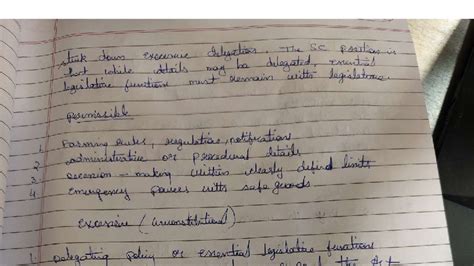 struck down excessive delegation. The SC position is
that while details may be delegated, essential
legislative function must remain with legislature.
Permissible
1. Framing Rules, regulations, notifications
2. administrative or Procedural details
3. decision-making within clearly defined limits
4. emergency powers with safe guards
Excessive (Unconstitutional)
1. Delegating policy or essential legislative functions